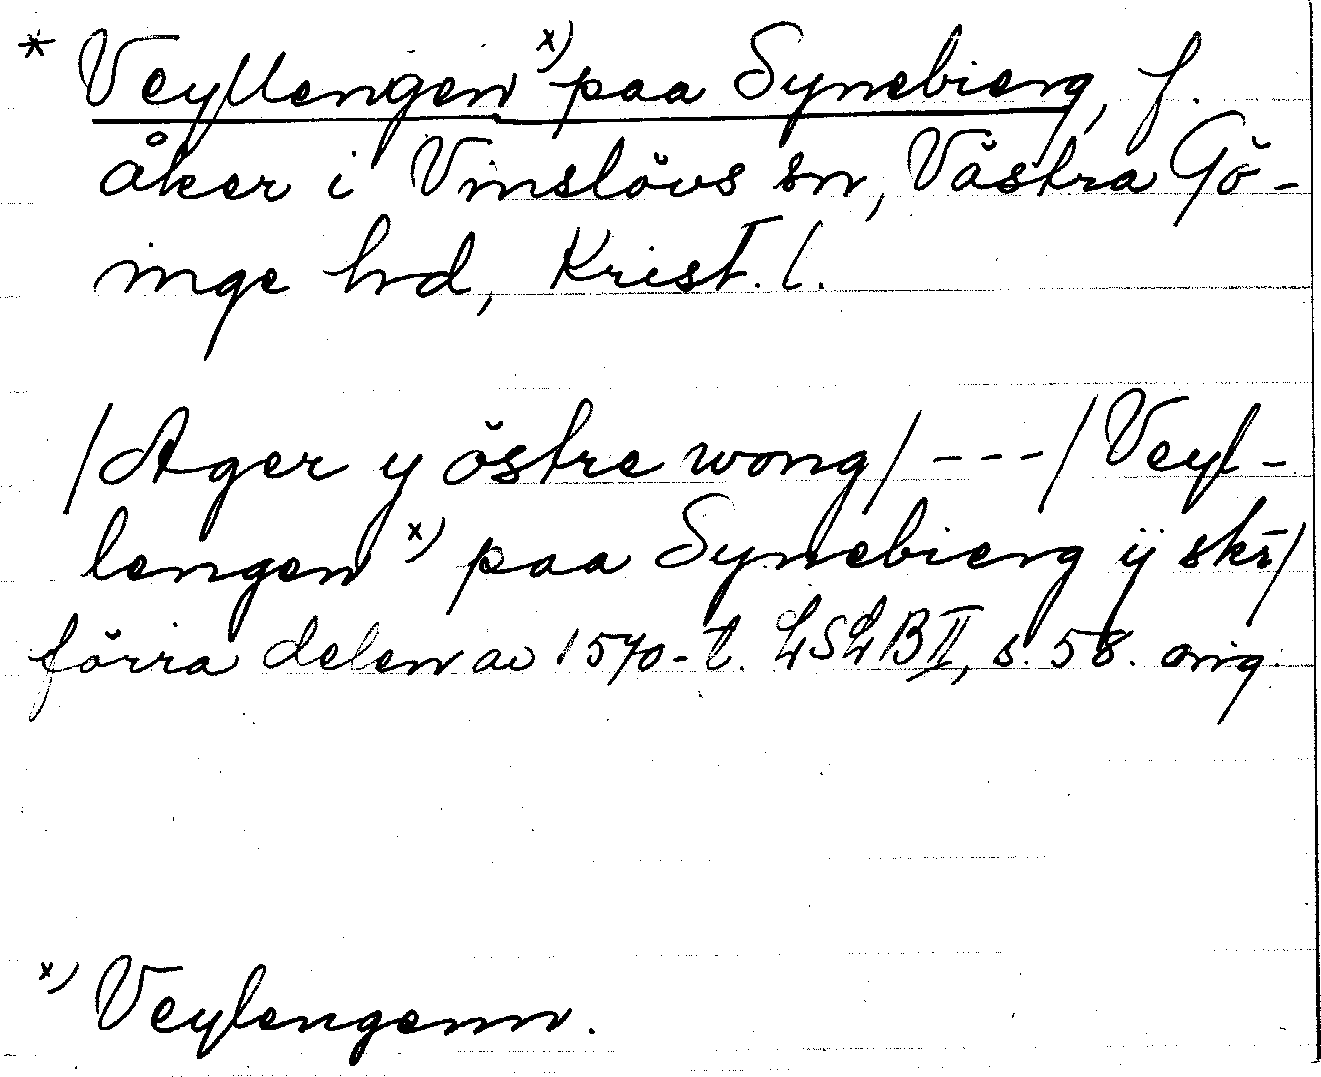 * Veyllengen x) paa Synebierg, f.
åker i Vinslövs sn, Västra Gö-
inge hd, Krist. l.
/Ager y östre wong/ - - - / Veyl-
lengen x) paa Synebierg ij skr/
förra delen av 1570-t. LSLB II, s. 58. orig.
x) Veylengenn.